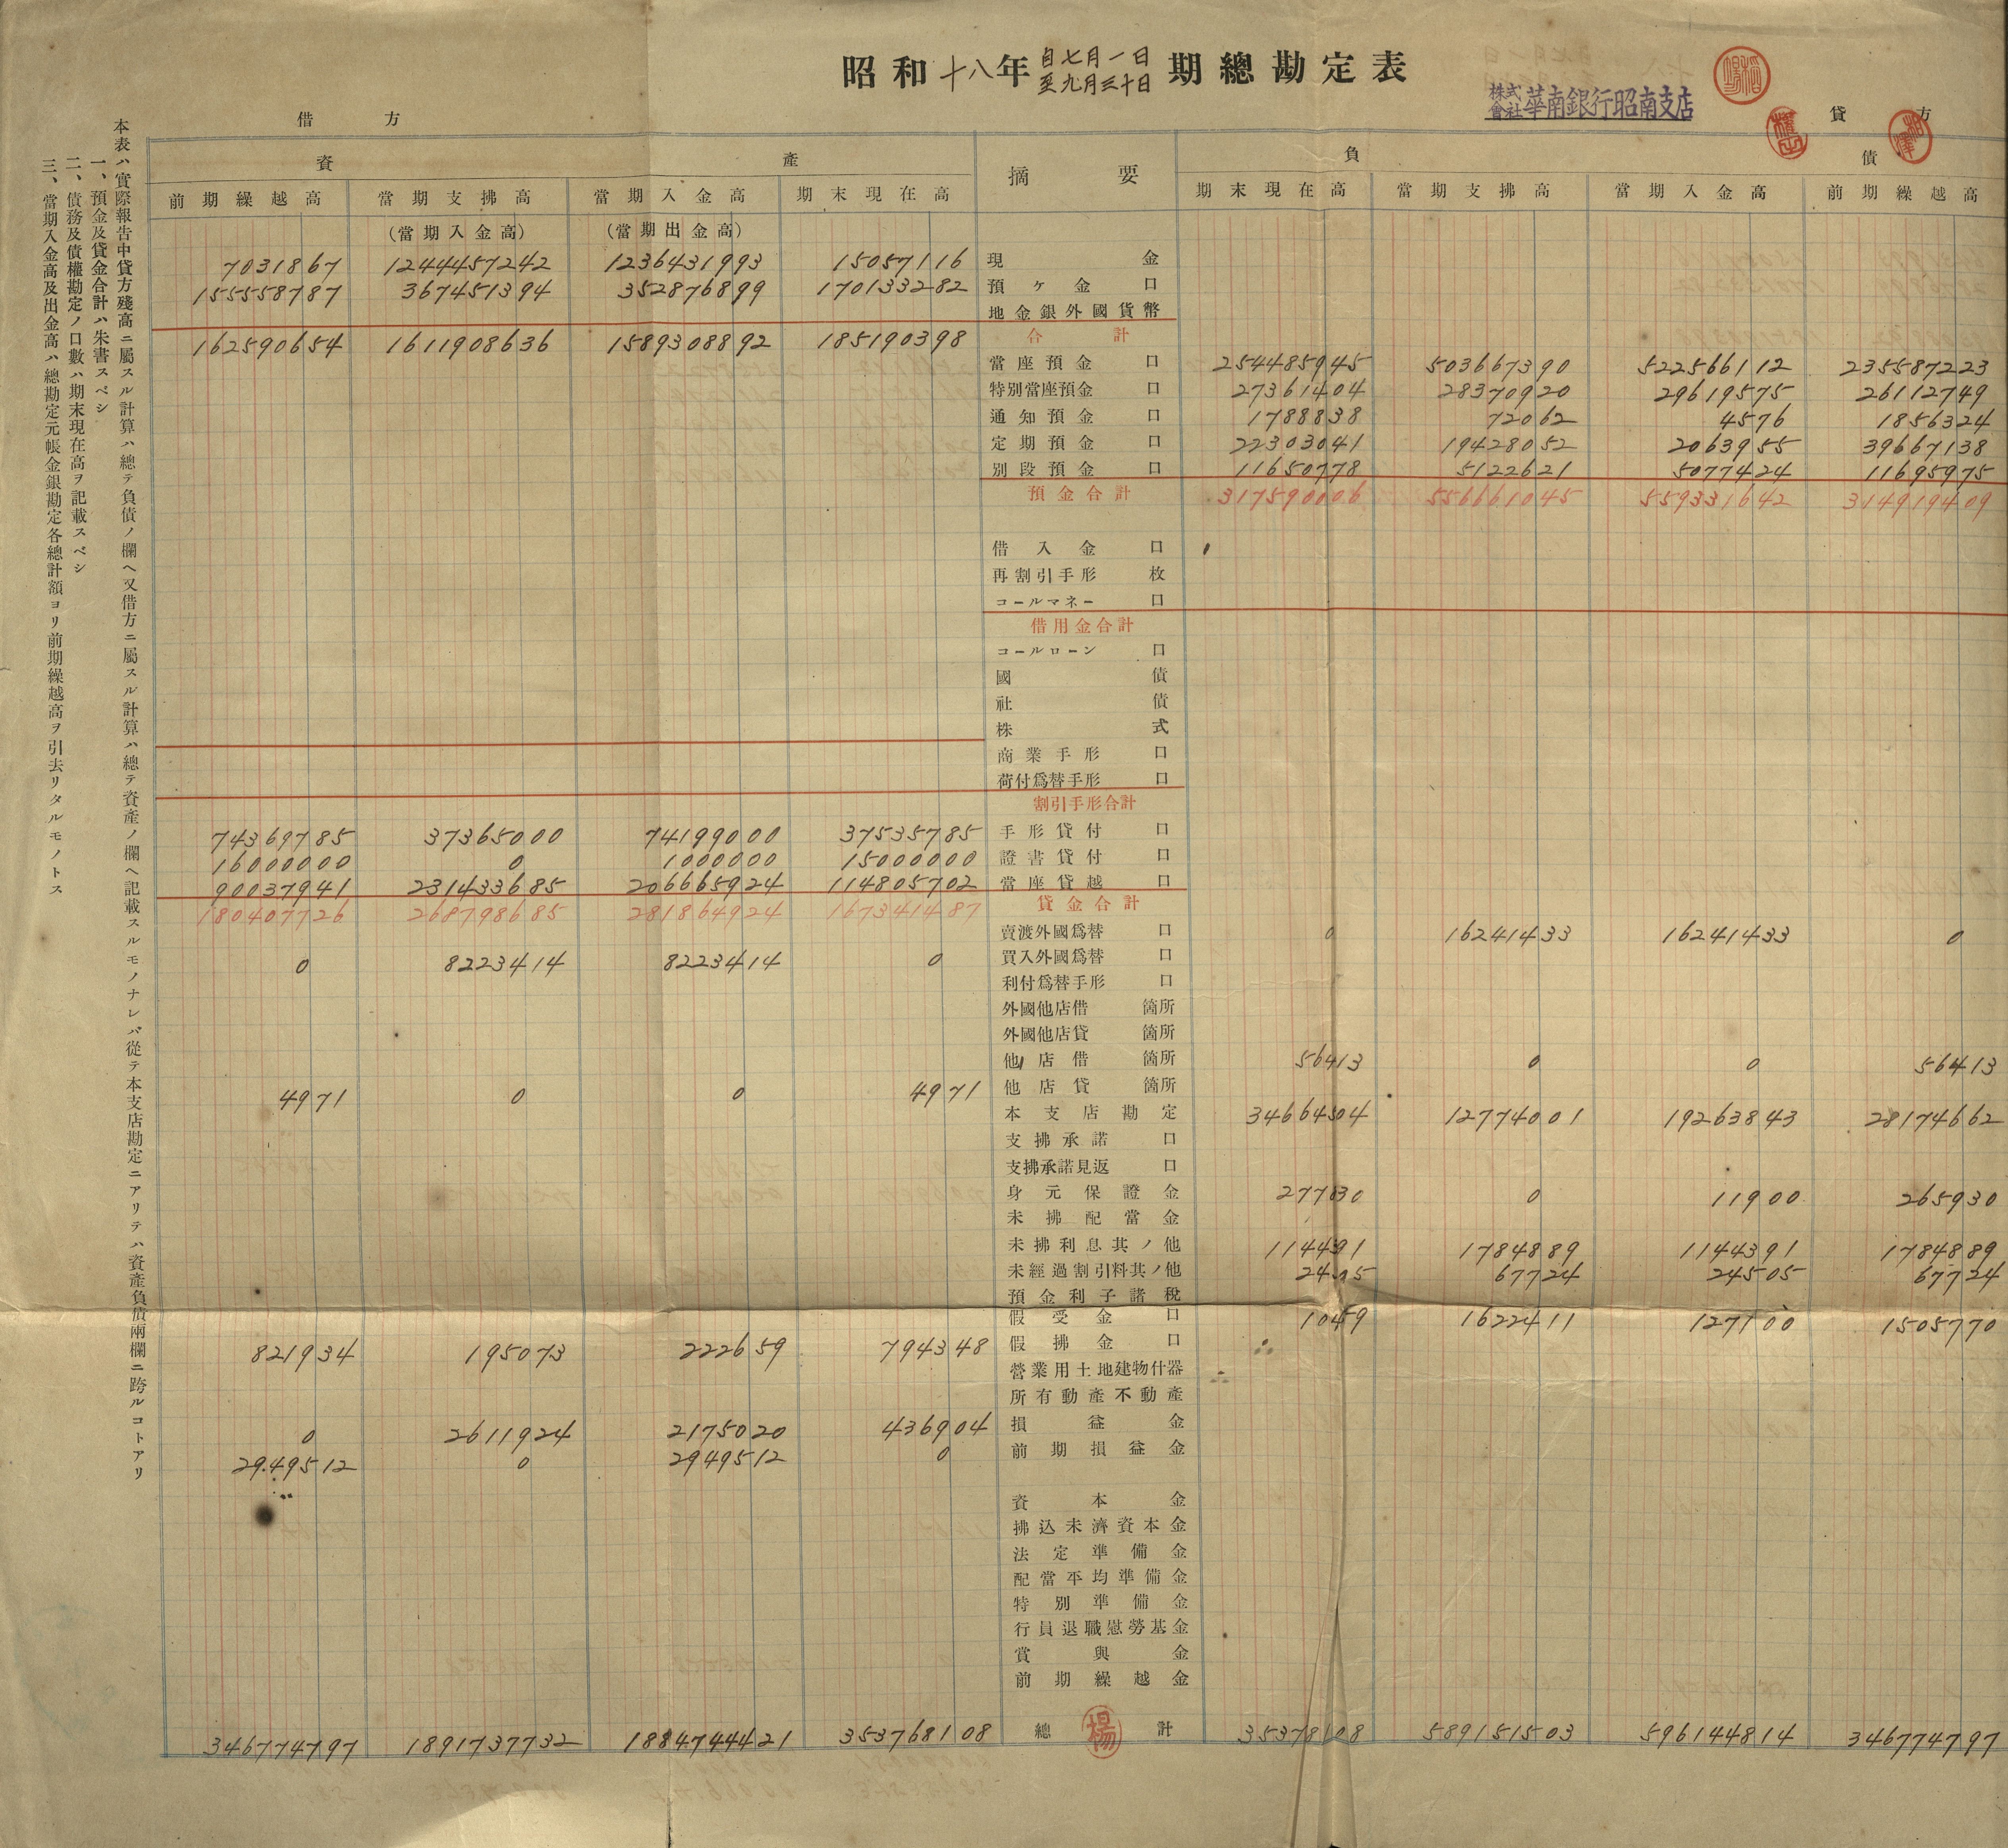 昭和十八年自七月一日至九月三十日期總勘定表
株式會社華南銀行昭南支店
借方
貸方
資產
摘要
負債
前期繰越高 當期支拂高 當期入金高 期末現在高 期末現在高 當期支拂高 當期入金高 前期繰越高
(當期入金高) (當期出金高)
7031867 1244457242 1236431993 15057116 現金
155558787 367451394 352876899 170133282 預ヶ金 口
地金銀外國貨幣
162590654 1611908636 1589308892 185190398 合計
當座預金 口 254485945 503667390 522566112 235587223
特別當座預金 口 27361404 28370920 29619575 26112749
通知預金 口 1788838 72062 4576 1856324
定期預金 口 22303041 19428052 2063955 39667138
別段預金 口 11650778 5122621 5077424 11695975
預金合計 317590006 556661045 559331642 314919409
借入金 口
再割引手形 枚
コールマネー 口
借用金合計
コールローン 口
國債
社債
株式
商業手形 口
荷付爲替手形 口
割引手形合計
74369785 37365000 74199000 37535785 手形貸付 口
16000000 0 1000000 15000000 證書貸付 口
90037941 231433685 206665924 114805702 當座貸越 口
180407726 268798685 281864924 167341487 貸金合計
賣渡外國爲替 口 0 16241433 16241433 0
0 8223414 8223414 0 買入外國爲替 口
利付爲替手形 口
外國他店借 箇所
外國他店貸 箇所
他店借 箇所 56413 0 0 56413
4971 0 0 4971 他店貸 箇所
本支店勘定 34664504 12774001 19263843 28174662
支拂承諾 口
支拂承諾見返 口
身元保證金 277830 0 11900 265930
未拂配當金
未拂利息其ノ他 1144391 1784889 1144391 1784889
未經過割引料其ノ他 24505 67724 24505 67724
預金利子諸稅
假受金 口 10459 1622411 127100 1505770
821934 195073 222659 794348 假拂金 口
營業用土地建物什器
所有動產不動產
0 2611924 2175020 436904 損益金
2949512 0 2949512 0 前期損益金
資本金
拂込未濟資本金
法定準備金
配當平均準備金
特別準備金
行員退職慰勞基金
賞與金
前期繰越金
346774797 1891737732 1884744421 353768108 總計 楊 353768108 589151503 596144814 346774797
本表ハ實際報告中貸方殘高ニ屬スル計算ハ總テ負債ノ欄ヘ又借方ニ屬スル計算ハ總テ資產ノ欄ヘ記載スルモノナレバ從テ本支店勘定ニアリテハ資產負債兩欄ニ跨ルコトアリ
一、預金及貸金合計ハ朱書スベシ
二、債務及債權勘定ノ口數ハ期末現在高ヲ記載スベシ
三、當期入金高及出金高ハ總勘定元帳金銀勘定各總計額ヨリ前期繰越高ヲ引去リタルモノトス